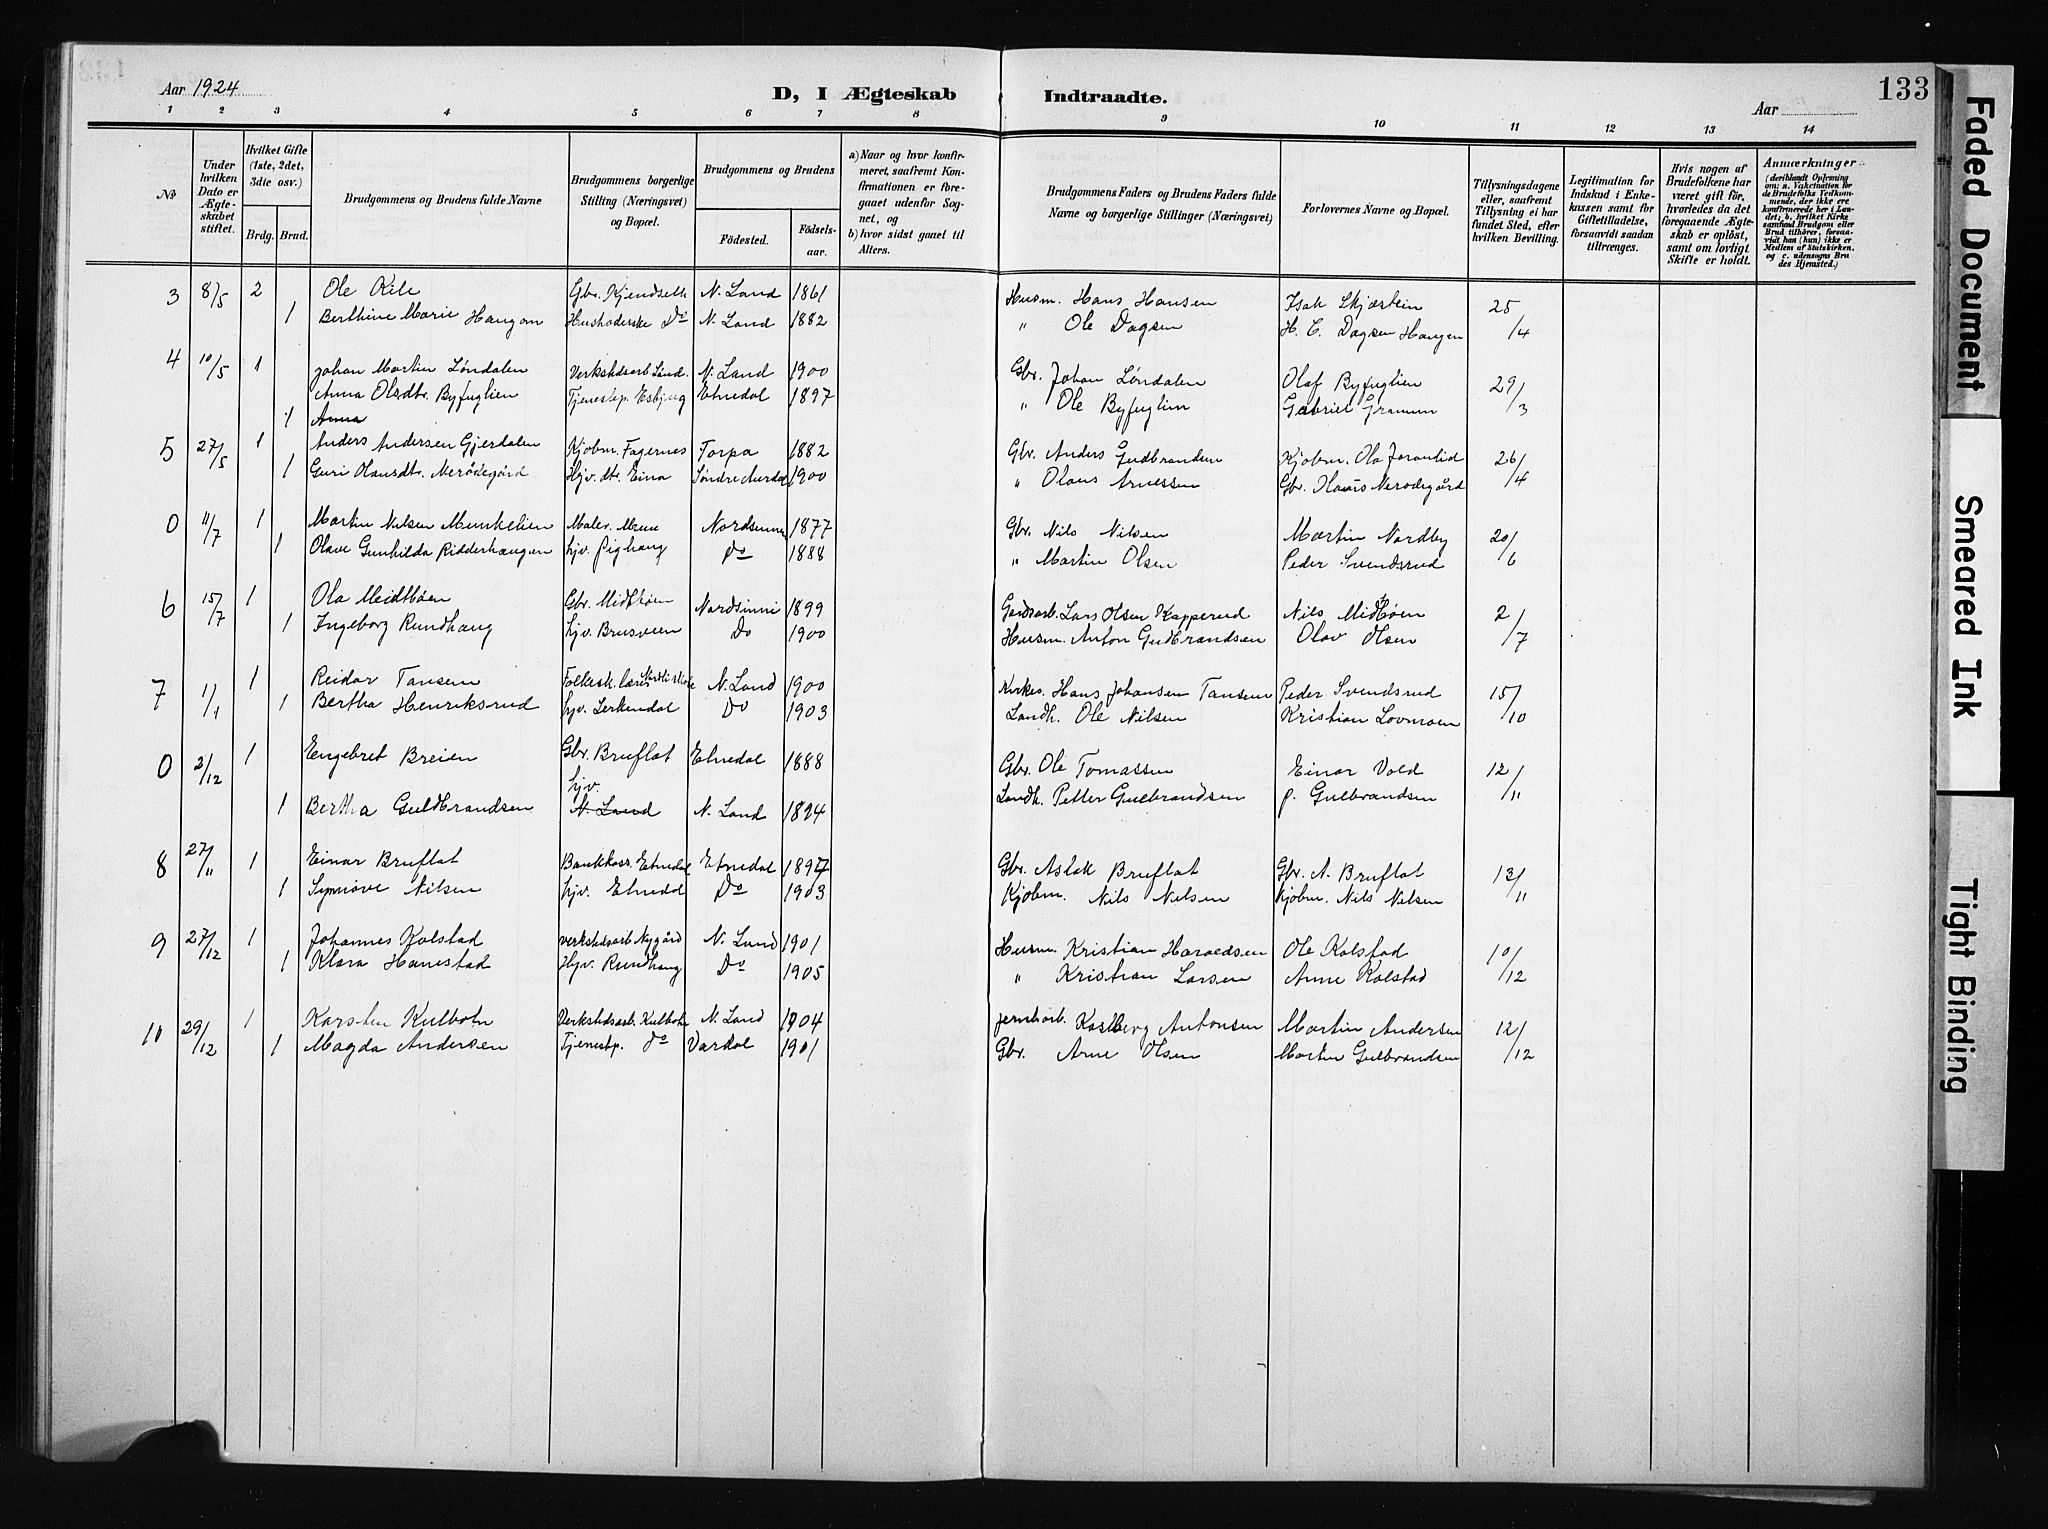 Aar 1924
D, I Ægteskab Indtraadte.
Aar
133
1 2 3 4 5 6 7 8 9 10 11 12 13 14
No
Under hvilken Dato er Ægteskabet stiftet.
Hvilket Gifte (1ste, 2det, 3die osv.)
Brdg. Brud.
Brudgommens og Brudens fulde Navne
Brudgommens borgerlige Stilling (Næringsvei) og Bopæl.
Brudgommens og Brudens
Fødested.
Fødselsaar.
a) Naar og hvor konfirmeret, saafremt Konfirmationen er foregaaet udenfor Sognet, og
b) hvor sidst gaaet til Alters.
Brudgommens Faders og Brudens Faders fulde Navne og borgerlige Stillinger (Næringsvei)
Forlovernes Navne og Bopæl.
Tillysningsdagene eller, saafremt Tillysning ei har fundet Sted, efter hvilken Bevilling.
Legitimation for Indskud i Enkekassen samt for Giftetilladelse, forsaavidt saadan tiltrænges.
Hvis nogen af Brudefolkene har været gift før, hvorledes da det foregaaende Ægteskab er opløst, samt om lovligt Skifte er holdt.
Anmærkninger
(deriblandt Oplysning om: a. Vakcination for de Brudefolks Vedkommende, der ikke ere konfirmerede her i Landet; b. hvilket Kirkesamfund Brudgom eller Brud tilhører, forsaavidt han (hun) ikke er Medlem af Statskirken, og c. udensogns Brudes Hjemsted.)
3 8/5 2 Ole Kile Gbr. Kjendseth N. Land 1861 Husm. Hans Hansen Isak Skjærstein 25/4
1 Berthine Marie Haugom Husholderske Do N. Land 1882 " Ole Dagsen H. C. Dagsen Haugen
4 10/5 1 Johan Martin Løndalen Verkstedsarb. Lønd. N. Land 1900 Gbr. Johan Løndalen Olaf Byfuglien 29/3
Anna Olsdtr. Byfuglien Tjenestep. Esbjug Etnedal 1897 " Ole Byfuglien Gabriel Gramum
1 Anna
5 27/5 1 Anders Andersen Gjerdalen Kjøbm. Fagernes Torpa 1882 Gbr. Anders Gudbrandsen Kjøbm. Ola Joranlid 26/4
1 Guri Olausdtr. Nerødegård Hjv. dt. Eina Søndre Aurdal 1900 " Olaus Arnessen Gbr. Olaus Nerødegård
0 11/7 1 Martin Nilsen Munkelien Maler. Moen Nordsinni 1877 Gbr. Nils Nilsen Martin Nordby 20/6
1 Olave Gunhilda Ridderhaugen hjv. Pighaug Do 1888 " Martin Olsen Peder Svendsrud
6 15/7 1 Ola Meidtbøen Gbr. Midtbøen Nordsinni 1899 Gardsarb. Lars Olsen Kapperud Nils Midtbøen 2/7
1 Ingeborg Rundhaug hjv. Brusveen Do 1900 Husm. Anton Gudbrandsen Olav Olsen
7 1/1 1 Reidar Tansem Folkesk. lærer N. Land 1900 Kirkes. Hans Johansen Tansem Peder Svendsrud 15/10
1 Bertha Henriksrud hjv. Lerkendal Do 1903 Landh. Ole Nilsen Kristian Lovmoen
0 2/12 1 Engebret Breien Gbr. Bruflat Etnedal 1888 Gbr. Ole Tomassen Einar Vold 12/11
hjv.
1 Bertha Guldbrandsen N. Land N. Land 1894 Landh. Petter Gulbrandsen P. Gulbrandsen
8 27/11 1 Einar Bruflat Bankkass. Etnedal Etnedal 1897 Gbr. Aslak Bruflat Gbr. A. Bruflat 13/11
1 Synnøve Nilsen hjv. Etnedal Do 1903 Kjøbm. Nils Nilsen Kjøbm. Nils Nilsen
9 27/12 1 Johannes Kolstad Verkstedsarb. Nygård N. Land 1901 Husm. Kristian Haraldsen Ole Kolstad 10/12
1 Klara Hanestad Hjv. Rundhaug Do 1905 " Kristian Larsen Anne Kolstad
10 29/12 1 Karsten Kulbotn Verkstedsarb. Kulbotn N. Land 1904 Jernbarb. Karlberg Antonsen Martin Andersen 12/12
1 Magda Andersen Tjenestp. do Vardal 1901 Gbr. Arne Olsen Martin Gulbrandsen
Faded Document
Smeared Ink
Tight Binding